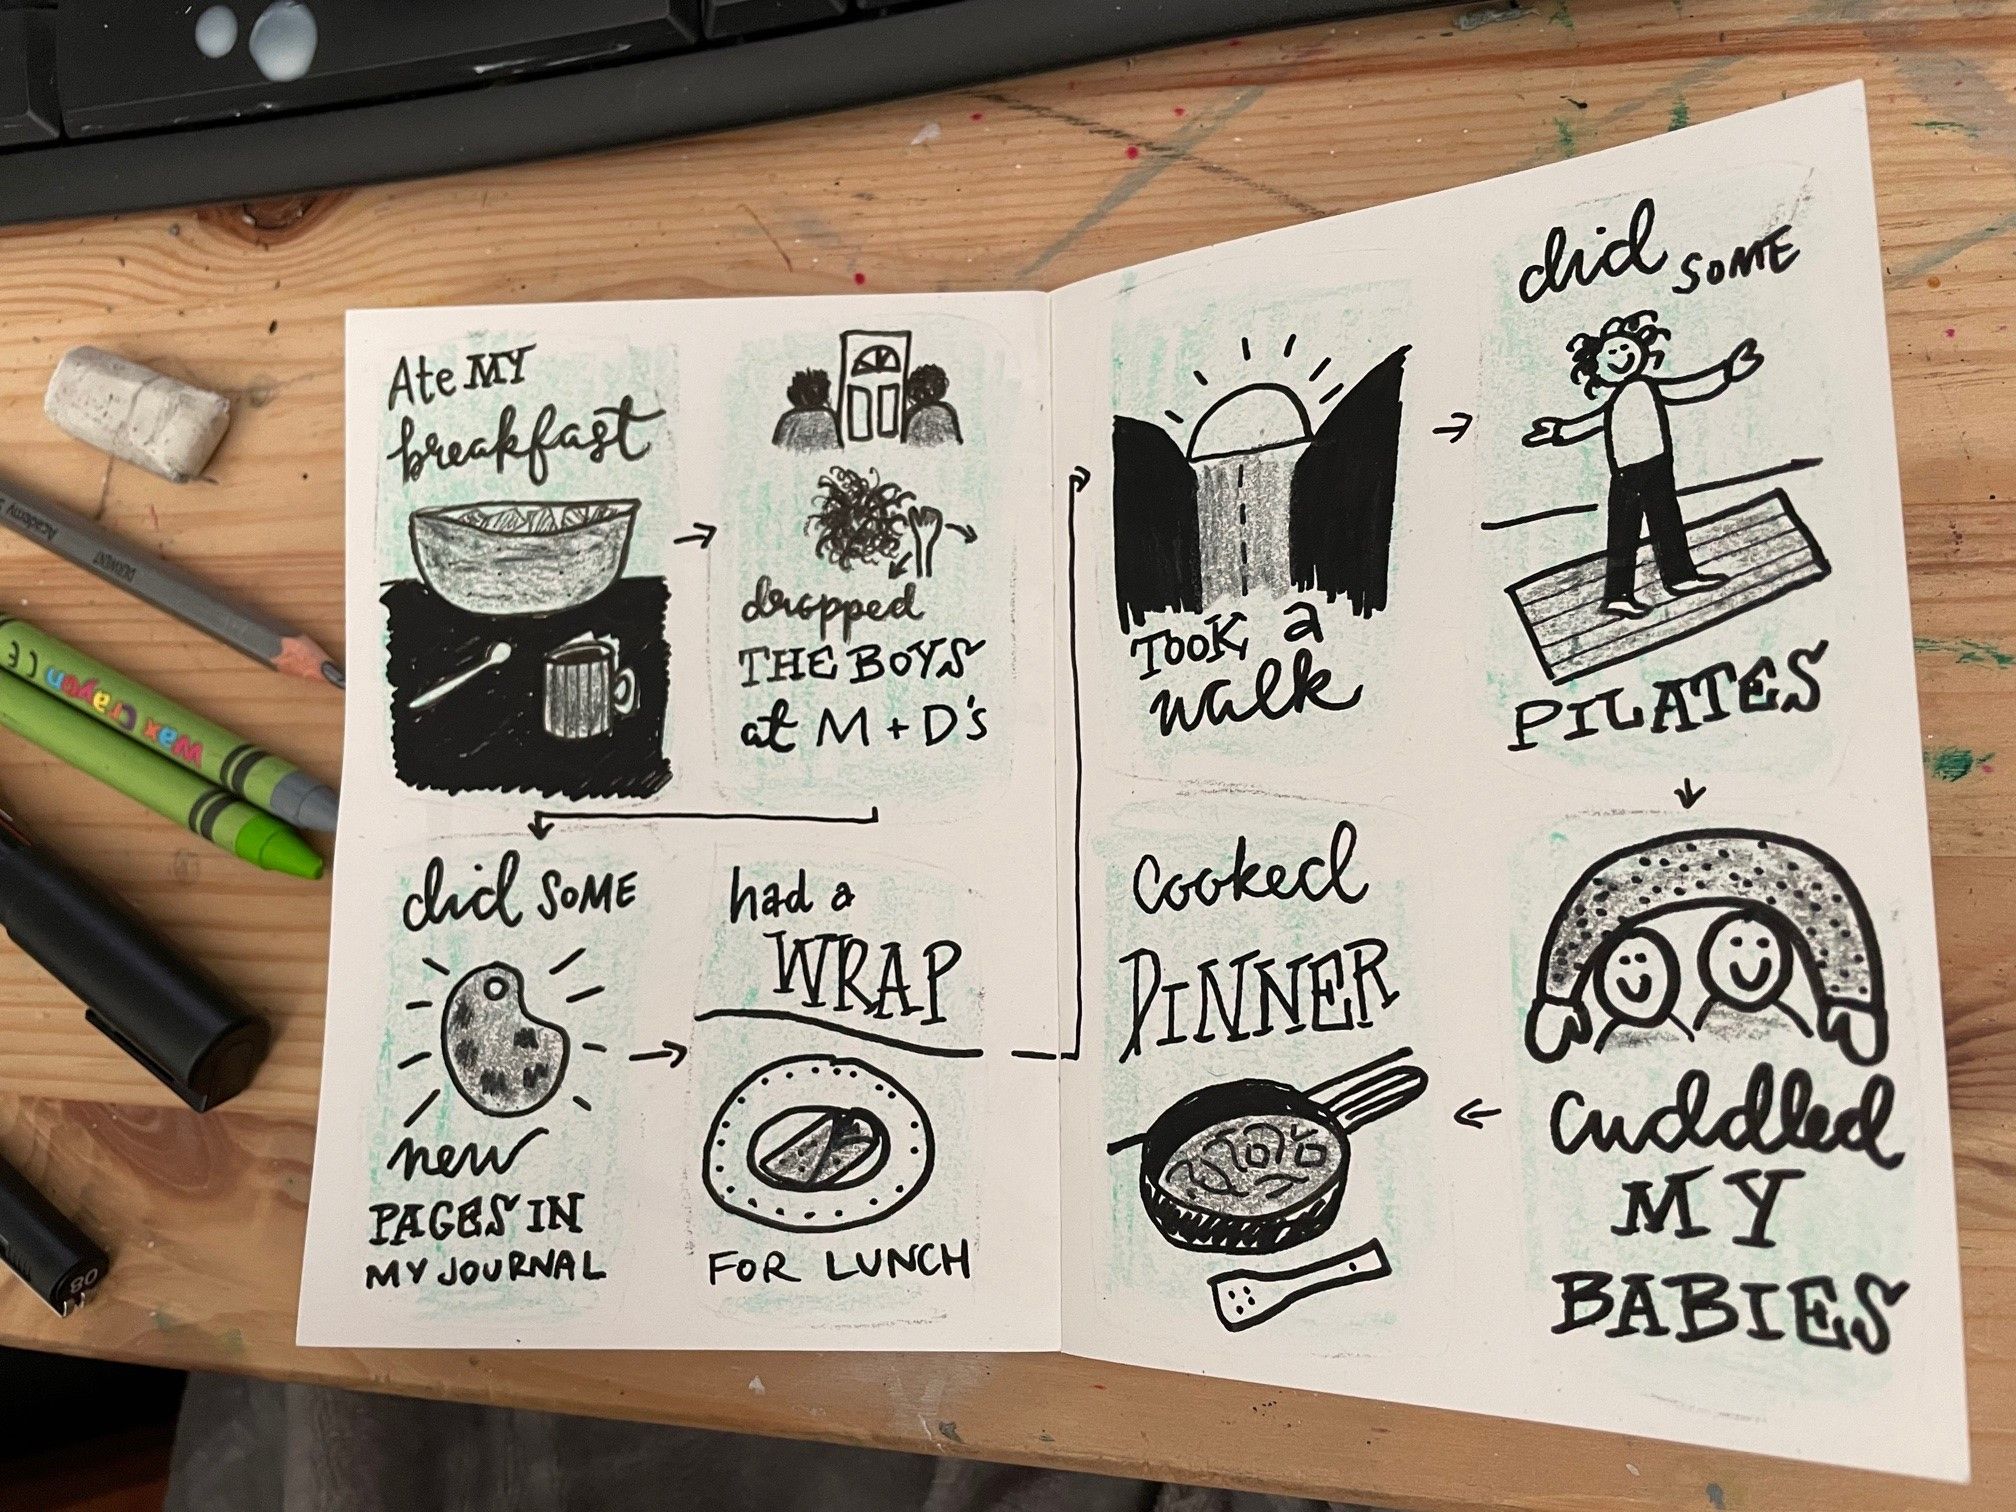 Ate MY
breakfast
dropped
THE BOYS
at M + D's
did SOME
new
PAGES IN
MY JOURNAL
had a
WRAP
FOR LUNCH
TOOK a
walk
did SOME
PILATES
cuddled
MY
BABIES
Cooked
DINNER
Academy
DERWENT
Wax Crayon CE
08